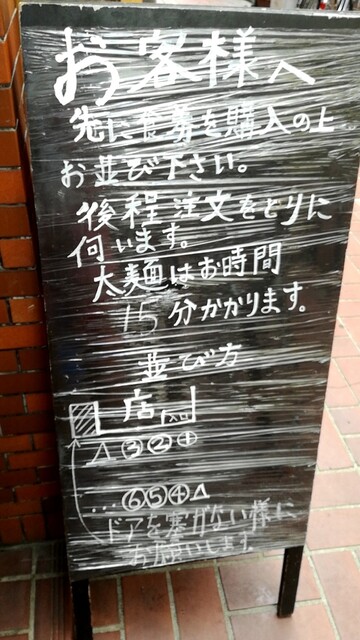 お客様へ
先に食券を購入の上
お並び下さい。
後程注文をとりに
伺います。
太麺はお時間
15分かかります。
並び方
店 入口
③②①
…⑥⑤④
ドアを塞がない様に
お願いします